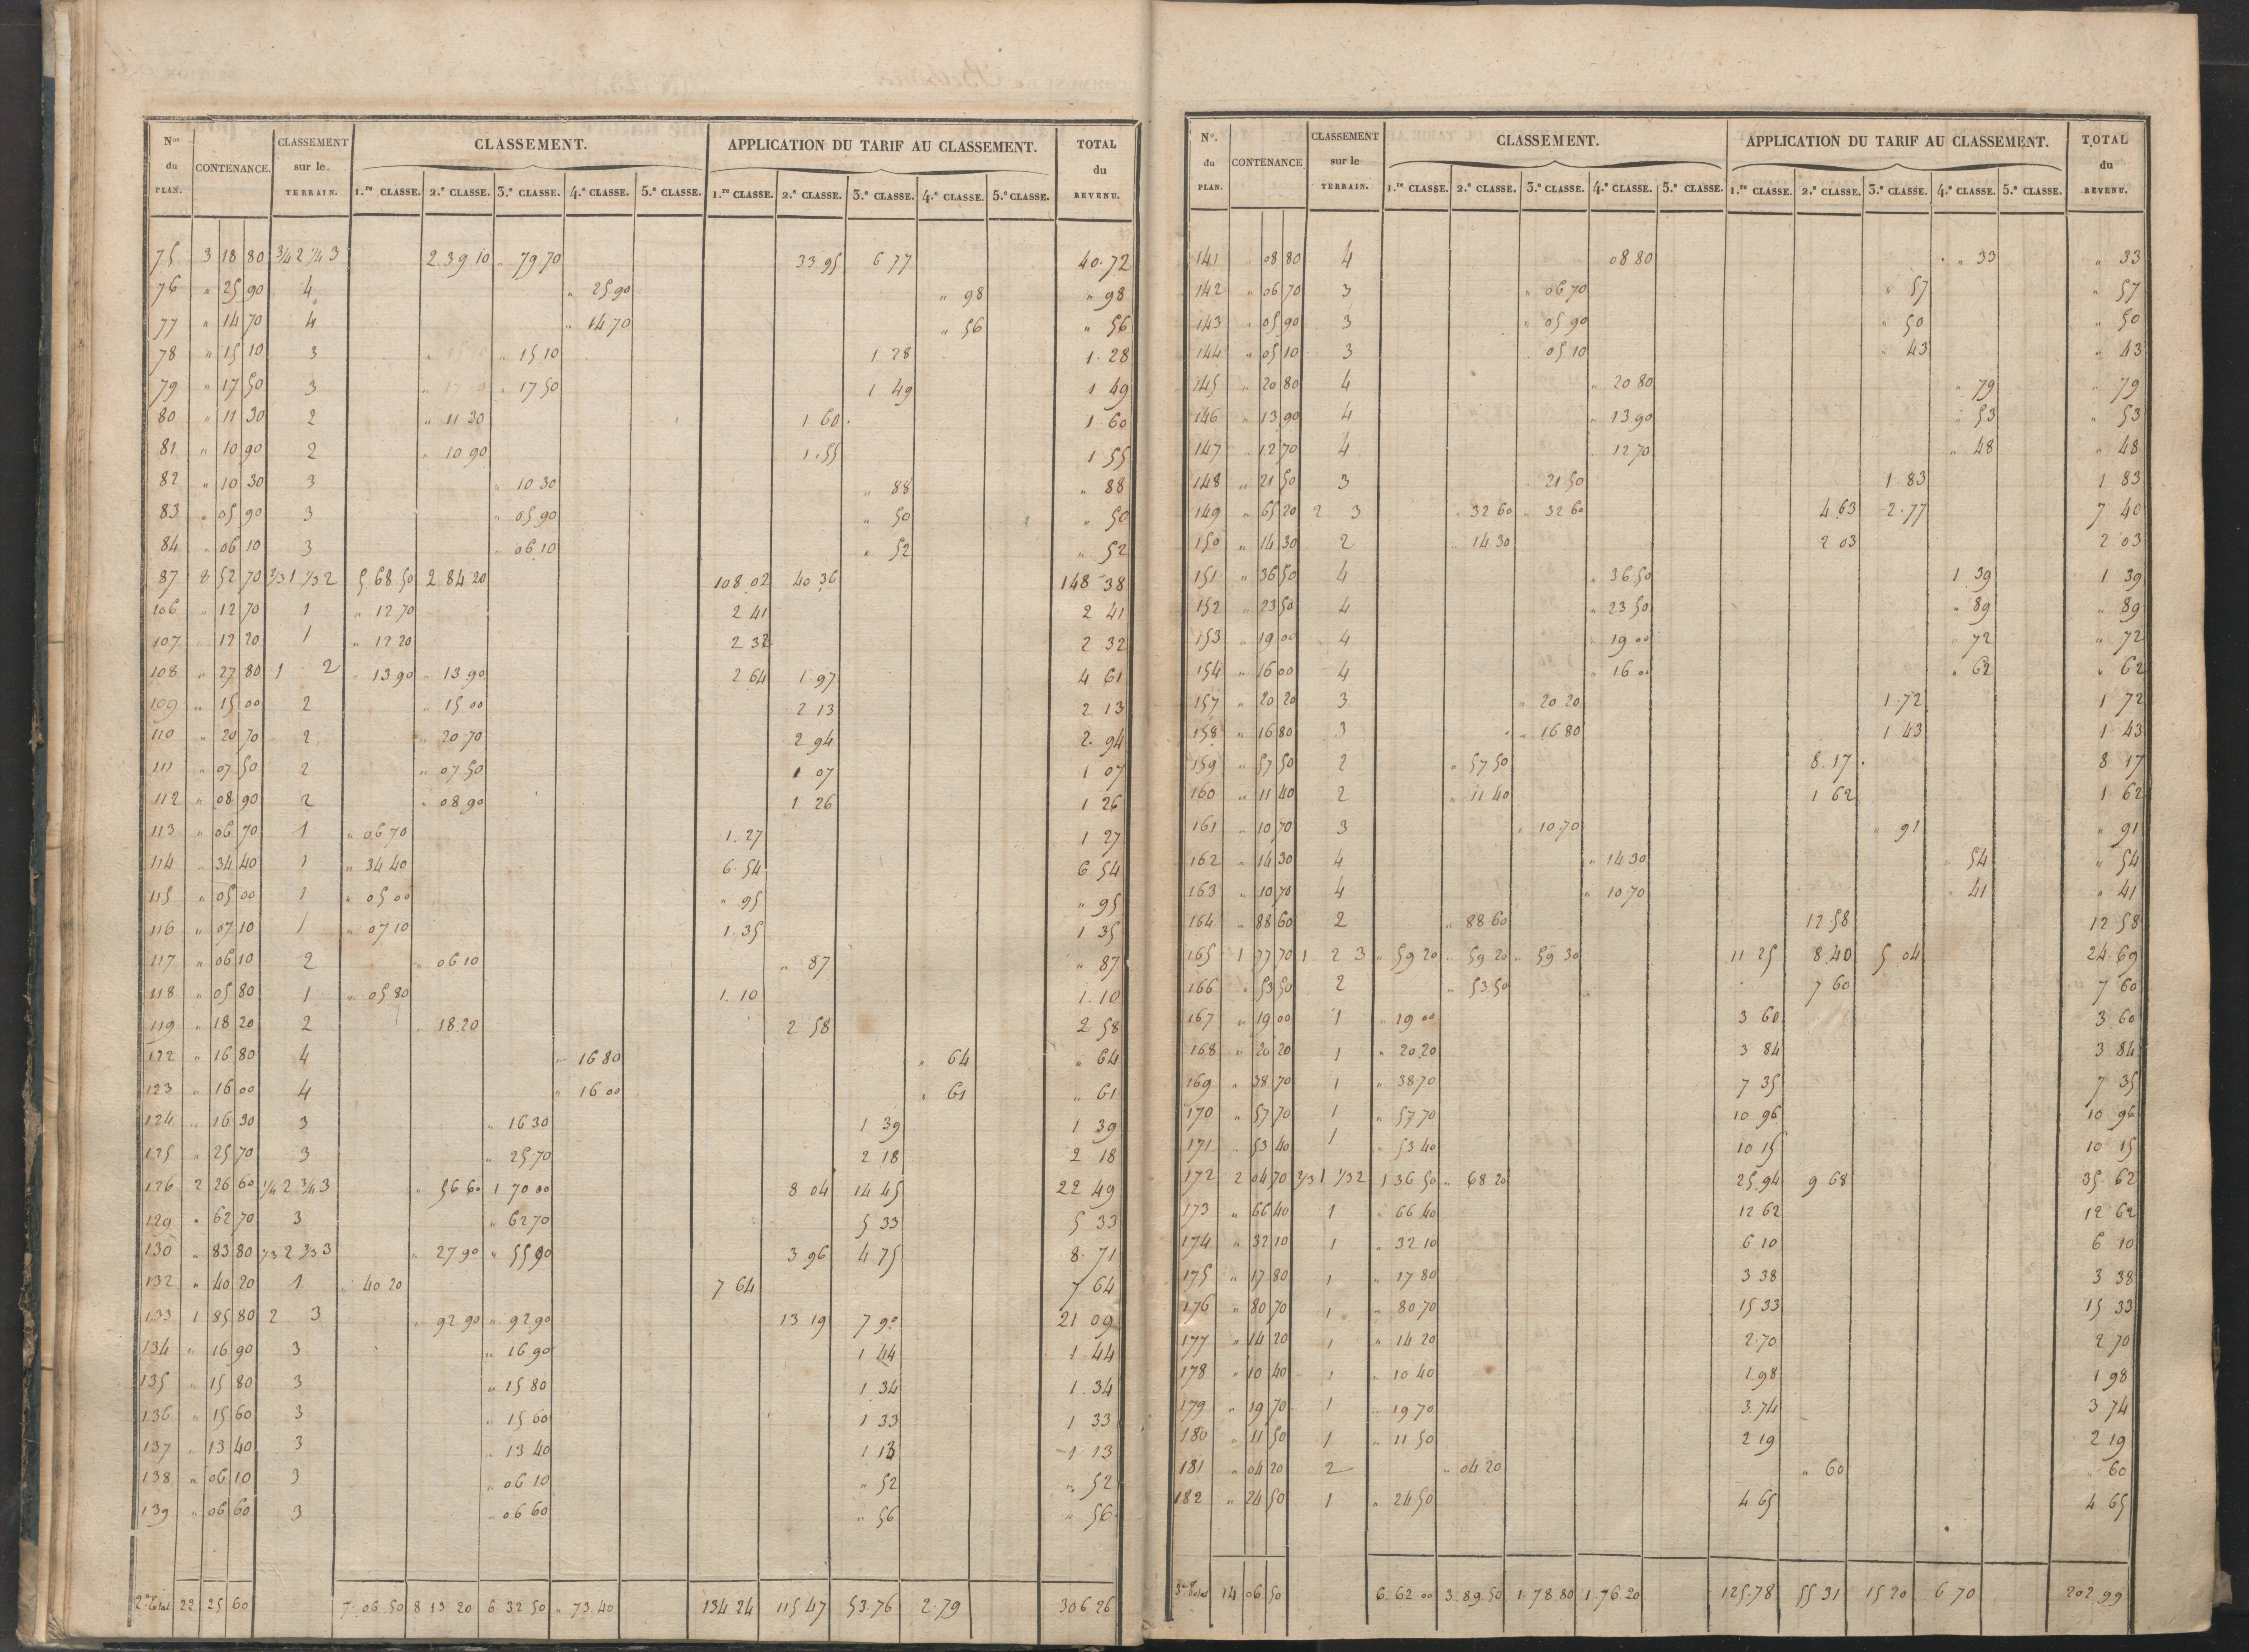 Nos du PLAN. CONTENANCE. CLASSEMENT sur le TERRAIN. CLASSEMENT. APPLICATION DU TARIF AU CLASSEMENT. TOTAL du REVENU.
1.re CLASSE. 2.e CLASSE. 3.e CLASSE. 4.e CLASSE. 5.e CLASSE. 1.re CLASSE. 2.e CLASSE. 3.e CLASSE. 4.e CLASSE. 5.e CLASSE.
75 3 18 80 3/4 2 1/4 3 2.39 10 " 79.70 33.95 6 77 40.72
76 " 25 90 4 " 25.90 " 98 " 98
77 " 14 70 4 " 14.70 " 56 " 56
78 " 15 10 3 " 15 10 1 28 1.28
79 " 17 50 3 " 17 50 1 49 1 49
80 " 11 30 2 " 11 30 1 60 1 60
81 " 10 90 2 " 10 90 1.55 1 55
82 " 10 30 3 " 10 30 " 88 " 88
83 " 05 90 3 " 05.90 " 50 " 50
84 " 06 10 3 " 06.10 " 52 " 52
87 8 52 70 2/3 1 1/3 2 5 68 50 2 84 20 108.02 40 36 148 38
106 " 12 70 1 " 12 70 2 41 2 41
107 " 12 20 1 " 12 20 2 32 2 32
108 " 27 80 1 2 " 13 90 " 13 90 2 64 1 97 4 61
109 " 15 00 2 " 15 00 2 13 2 13
110 " 20 70 2 " 20 70 2 94 2. 94
111 " 07 50 2 " 07 50 1 07 1 07
112 " 08 90 2 " 08 90 1 26 1 26
113 " 06 70 1 " 06 70 1.27 1 27
114 " 34 40 1 " 34 40 6.54 6 54
115 " 05 00 1 " 05 00 " 95 " 95
116 " 07 10 1 " 07 10 1.35 1 35
117 " 06 10 2 " 06 10 " 87 " 87
118 " 05 80 1 " 05 80 1.10 1.10
119 " 18 20 2 " 18.20 2 58 2 58
122 " 16 80 4 " 16 80 " 64 " 64
123 " 16 00 4 " 16 00 " 61 " 61
124 " 16 30 3 " 16 30 1 39 1 39
125 " 25 70 3 " 25.70 2 18 2 18
126 2 26 60 1/4 2 3/4 3 " 56 60 1 70 00 8 04 14 45 22 49
129 " 62 70 3 " 62 70 5 33 5 33
130 " 83 80 1/3 2 2/3 3 " 27 90 " 55 90 3 96 4 75 8.71
132 " 40 20 1 " 40 20 7 64 7 64
133 1 85 80 2 3 " 92 90 " 92 90 13 19 7 90 21 09
134 " 16 90 3 " 16 90 1 44 1 44
135 " 15 80 3 " 15 80 1 34 1.34
136 " 15 60 3 " 15 60 1 33 1 33
137 " 13 40 3 " 13 40 1 13 1 13
138 " 06 10 3 " 06 10 " 52 " 52
139 " 06 60 3 " 06 60 " 56 " 56
2e Total 22 25 60 7.06.50 8 13 20 6.32 50 " 73.40 134 24 115 47 53.76 2.79 306 26
No. du PLAN. CONTENANCE CLASSEMENT sur le TERRAIN. CLASSEMENT. APPLICATION DU TARIF AU CLASSEMENT. TOTAL du REVENU.
1.re CLASSE. 2.e CLASSE. 3.e CLASSE. 4.e CLASSE. 5.e CLASSE. 1.re CLASSE. 2.e CLASSE. 3.e CLASSE. 4.e CLASSE. 5.e CLASSE.
141 08 80 4 08 80 " 33 " 33
142 " 06 70 3 " 06 70 " 57 " 57
143 " 05 90 3 " 05 90 " 50 " 50
144 " 05 10 3 05 10 " 43 " 43
145 " 20 80 4 " 20 80 " 79 " 79
146 " 13 90 4 " 13 90 " 53 " 53
147 " 12 70 4 " 12 70 " 48 " 48
148 " 21 50 3 21 50 1.83 1 83
149 " 65 20 2 3 " 32 60 " 32 60 4 63 2.77 7 40
150 " 14 30 2 " 14 30 2 03 2 03
151 " 36 50 4 " 36 50 1 39 1 39
152 " 23 50 4 " 23 50 " 89 " 89
153 " 19 00 4 19 00 " 72 " 72
154 " 16 00 4 " 16 00 " 62 " 62
157 " 20 20 3 " 20 20 1.72 1 72
158 " 16 80 3 " 16 80 1 43 1 43
159 " 57 50 2 " 57 50 8.17 8 17
160 " 11 40 2 " 11 40 1 62 1 62
161 " 10 70 3 " 10.70 " 91 " 91
162 " 14 30 4 " 14 30 " 54 " 54
163 " 10 70 4 " 10 70 " 41 " 41
164 " 88 60 2 " 88 60 12 58 12 58
165 1 77 70 1 2 3 " 59 20 " 59 20 " 59 30 11 25 8.40 5 04 24 69
166 " 53 50 2 " 53.50 7 60 7 60
167 " 19 00 1 " 19 00 3 60 3 60
168 " 20 20 1 " 20.20 3 84 3 84
169 " 38 70 1 " 38.70 7 35 7 35
170 " 57 70 1 " 57 70 10 96 10 96
171 " 53 40 1 " 53 40 10 15 10 15
172 2 04 70 2/3 1 1/3 2 1 36 50 " 68 20 25.94 9 68 35 62
173 " 66 40 1 " 66 40 12 62 12 62
174 " 32 10 1 " 32 10 6 10 6 10
175 " 17 80 1 " 17 80 3 38 3 38
176 " 80 70 1 " 80 70 15 33 15 33
177 " 14 20 1 " 14 20 2.70 2 70
178 " 10 40 1 " 10 40 1 98 1 98
179 " 19 70 1 " 19 70 3.74 3 74
180 " 11 50 1 " 11 50 2 19 2 19
181 " 04 20 2 " 04 20 " 60 " 60
182 " 24 50 1 " 24 50 4 65 4 65
3e Total 14 06 50 6.62 00 3.89.50 1.78 80 1.76.20 125.78 55 31 15 20 6 70 202 99